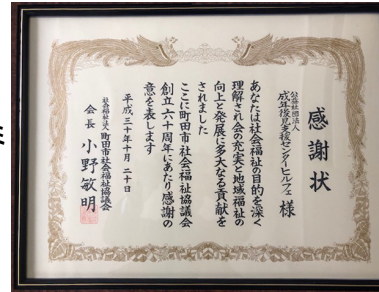 感謝状
公益社団法人
成年後見支援センターヒルフェ 様
あなたは社会福祉の目的を深く
理解され会の充実と地域福祉の
向上と発展に多大なる貢献を
されました
ここに町田市社会福祉協議会
創立六十周年にあたり感謝の
意を表します
平成三十年十月二十日
社会福祉法人 町田市社会福祉協議会
会長 小野敏明